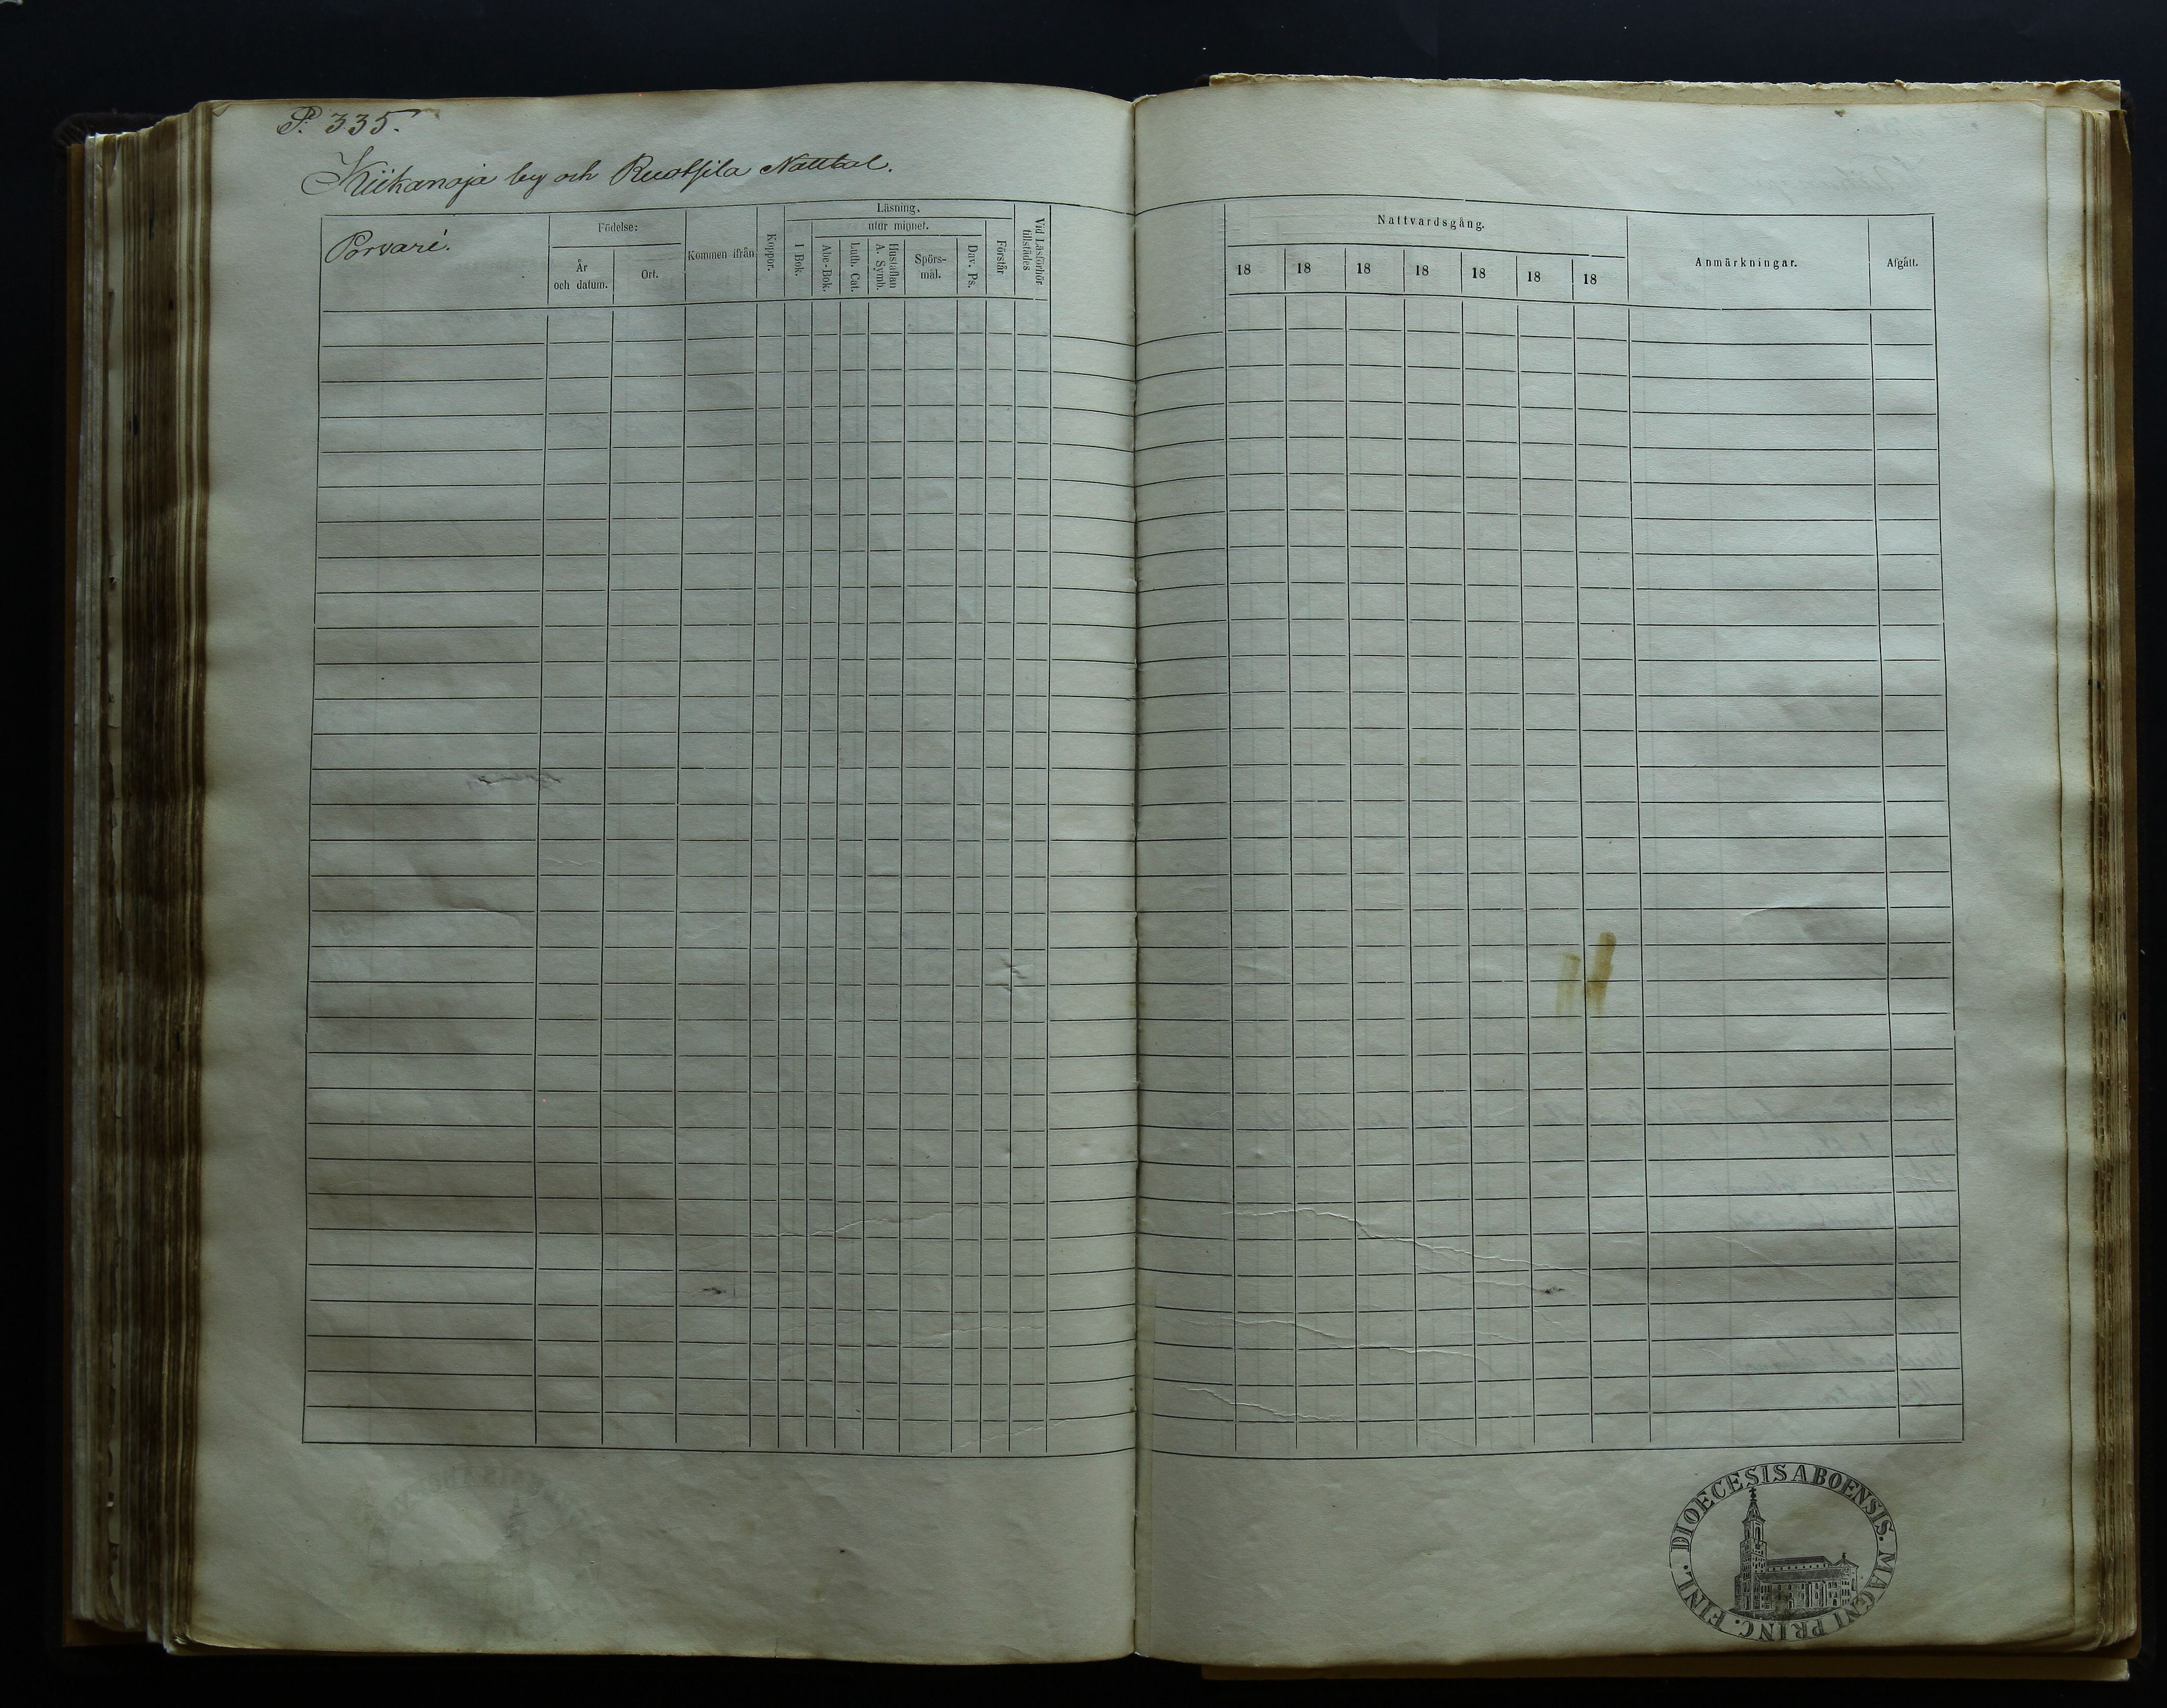 P. 335.
Kiikanoja by och Ruotsila Nattbol.
Porvari.
Födelse:
År
och datum.
Ort.
Kommen ifrån
Koppor.
Läsning.
utur minnet.
I Bok.
Abc-Bok.
Luth. Cat.
Hustaflan
A. Symb.
Spörs-
mål.
Dav. Ps.
Förstår
Vid Läsförhör
tillstädes
Nattvardsgång.
18 18 18 18 18 18 18
Anmärkningar.
Afgått.
DIOECESIS ABOENSIS. MAGNI PRINC. FINL.